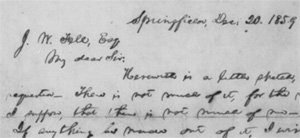 Springfield, Dec. 20. 1859
J. W. Fell, Esq
My dear Sir:
Herewith is a little sketch,
requested. There is not much of it, for the
I suppose, that there is not much of me
If anything be made out of it, I wis